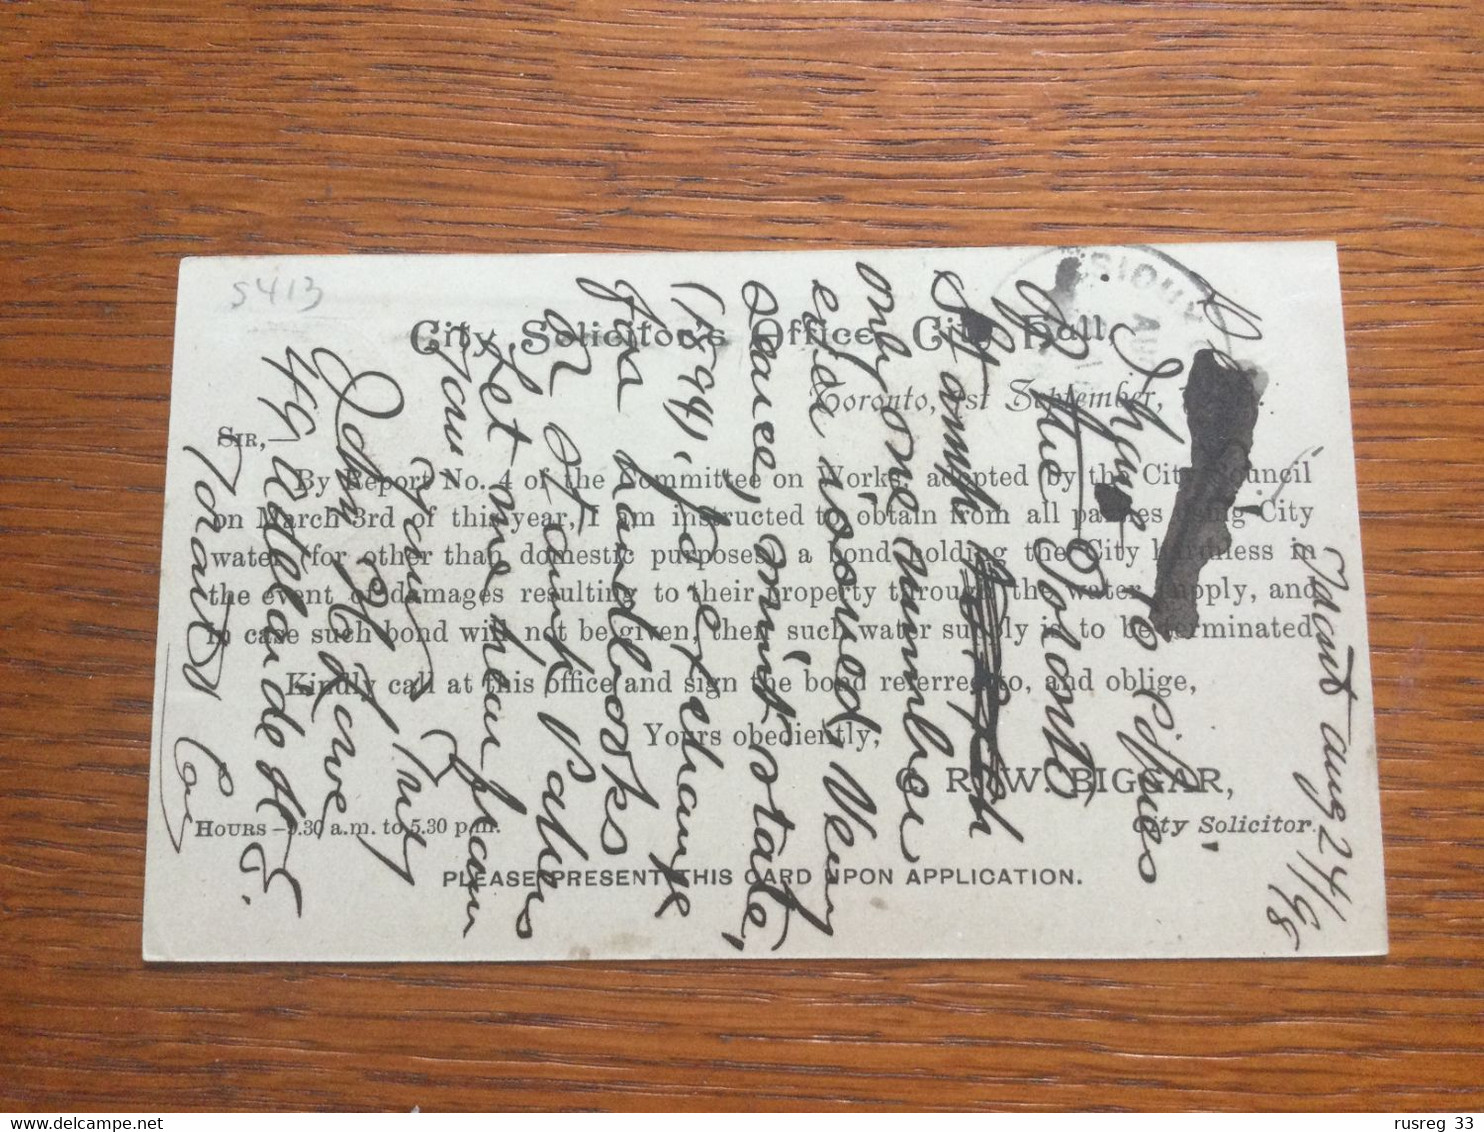 S413
City Solicitor's Office, City Hall,
Toronto, 1st September,
SIR,—
By Report No. 4 of the Committee on Works, adopted by the City Council
on March 3rd of this year, I am instructed to obtain from all parties using City
water (for other than domestic purposes) a bond holding the City harmless in
the event of damages resulting to their property through the water supply, and
in case such bond will not be given, then such water supply is to be terminated.
Kindly call at this office and sign the bond referred to, and oblige,
Yours obediently,
C. R. W. BIGGAR,
City Solicitor.
HOURS—9.30 a.m. to 5.30 p.m.
PLEASE PRESENT THIS CARD UPON APPLICATION.
SIOUX
AU
Toronto Aug 24/98
I have 70 copies
of the Toronto
Stamp
only one number
ever issued. Very
scarce, mint state,
(1894), I'll exchange
for handbooks
or Stamp Papers
Let me hear from
you
Yours truly
John R Lowe
49 Adelaide St E.
Toronto Can
rusreg 33